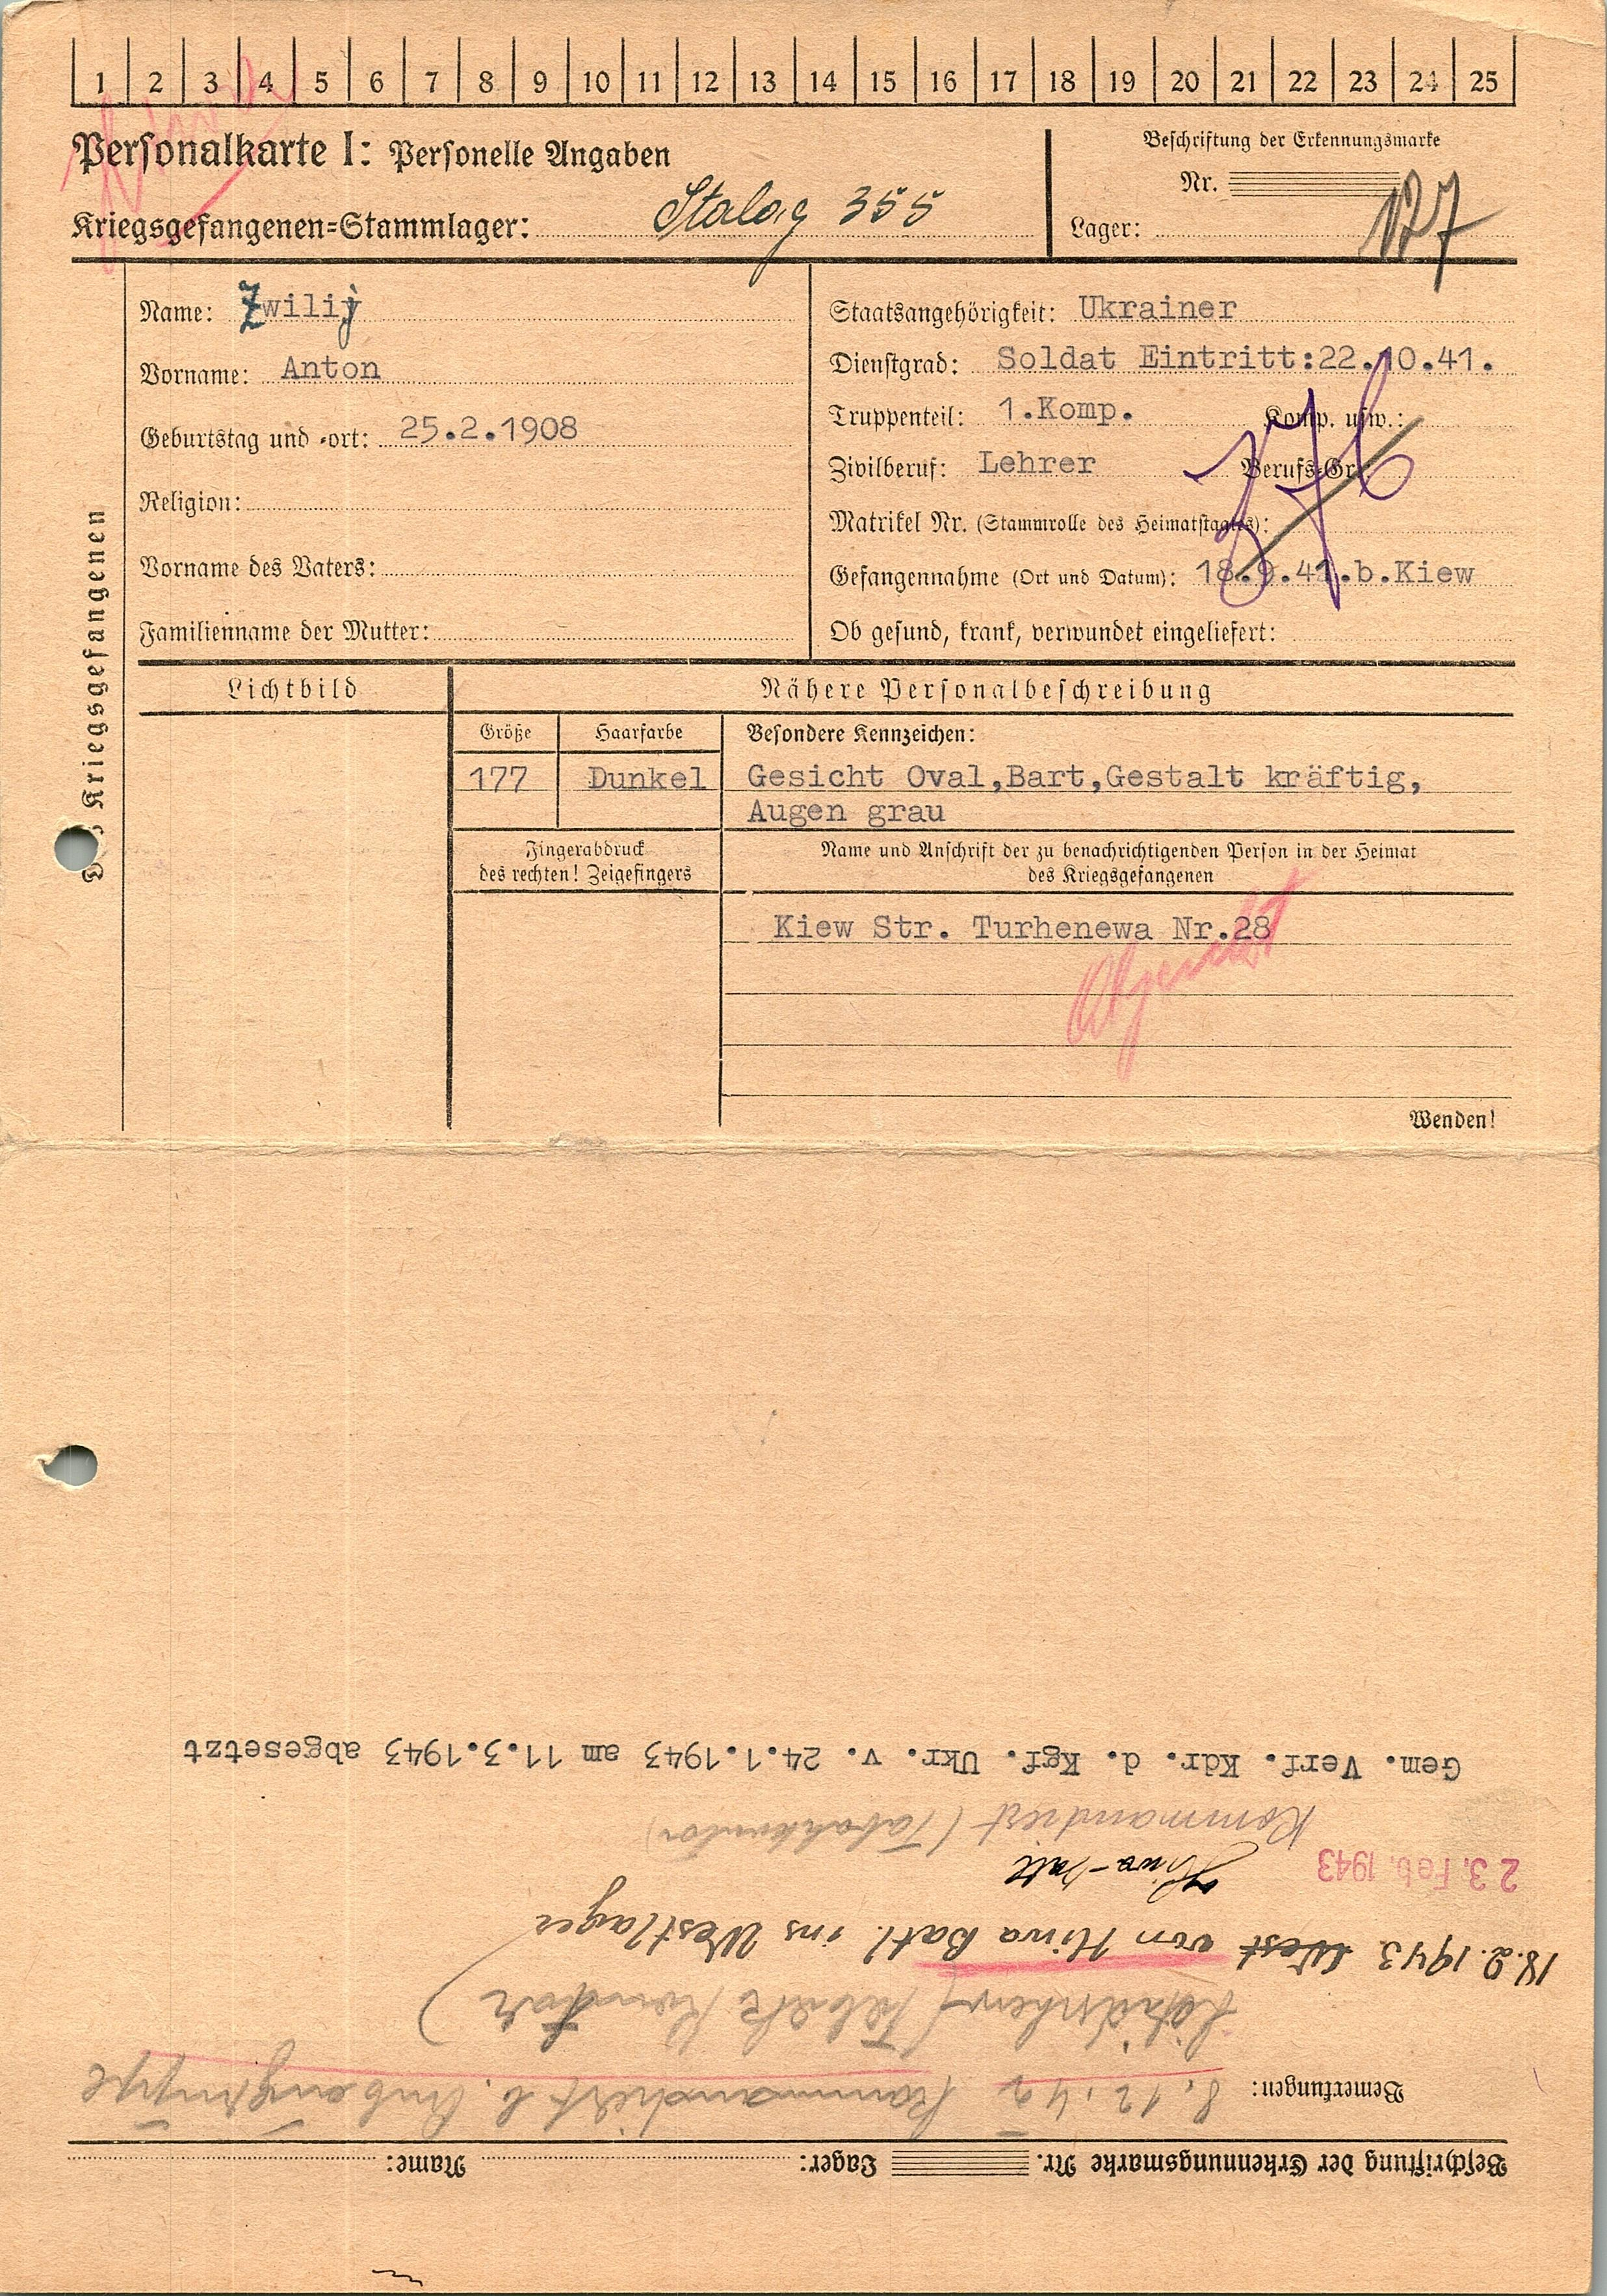 1 2 3 4 5 6 7 8 9 10 11 12 13 14 15 16 17 18 19 20 21 22 23 24 25
Personalkarte I: Personelle Angaben
Beschriftung der Erkennungsmarke
Nr.
Kriegsgefangenen=Stammlager: Stalag 355
Lager: 127
Name: Zwilij
Vorname: Anton
Geburtstag und -ort: 25.2.1908
Religion:
Vorname des Vaters:
Familienname der Mutter:
Staatsangehörigkeit: Ukrainer
Dienstgrad: Soldat Eintritt:22.10.41.
Truppenteil: 1.Komp. Komp. usw.:
Zivilberuf: Lehrer Berufs-Gr.:
Matrikel Nr. (Stammrolle des Heimatstaates):
Gefangennahme (Ort und Datum): 18.9.41.b.Kiew
Ob gesund, krank, verwundet eingeliefert:
Kriegsgefangenen
Lichtbild
Nähere Personalbeschreibung
Größe Haarfarbe Besondere Kennzeichen:
177 Dunkel Gesicht Oval,Bart,Gestalt kräftig,
Augen grau
Fingerabdruck
des rechten! Zeigefingers
Name und Anschrift der zu benachrichtigenden Person in der Heimat
des Kriegsgefangenen
Kiew Str. Turhenewa Nr.28
Wenden!
Beschriftung der Erkennungsmarke Nr. Lager: Name:
Bemerkungen: 8.12.42 kommandiert b.
18.2.1943 West von Hiwa Batl. ins Westlager
23. Feb. 1943 Hiwa-Batl
Kommandiert
Gem. Verf. Kdr. d. Kgf. Ukr. v. 24.1.1943 am 11.3.1943 abgesetzt